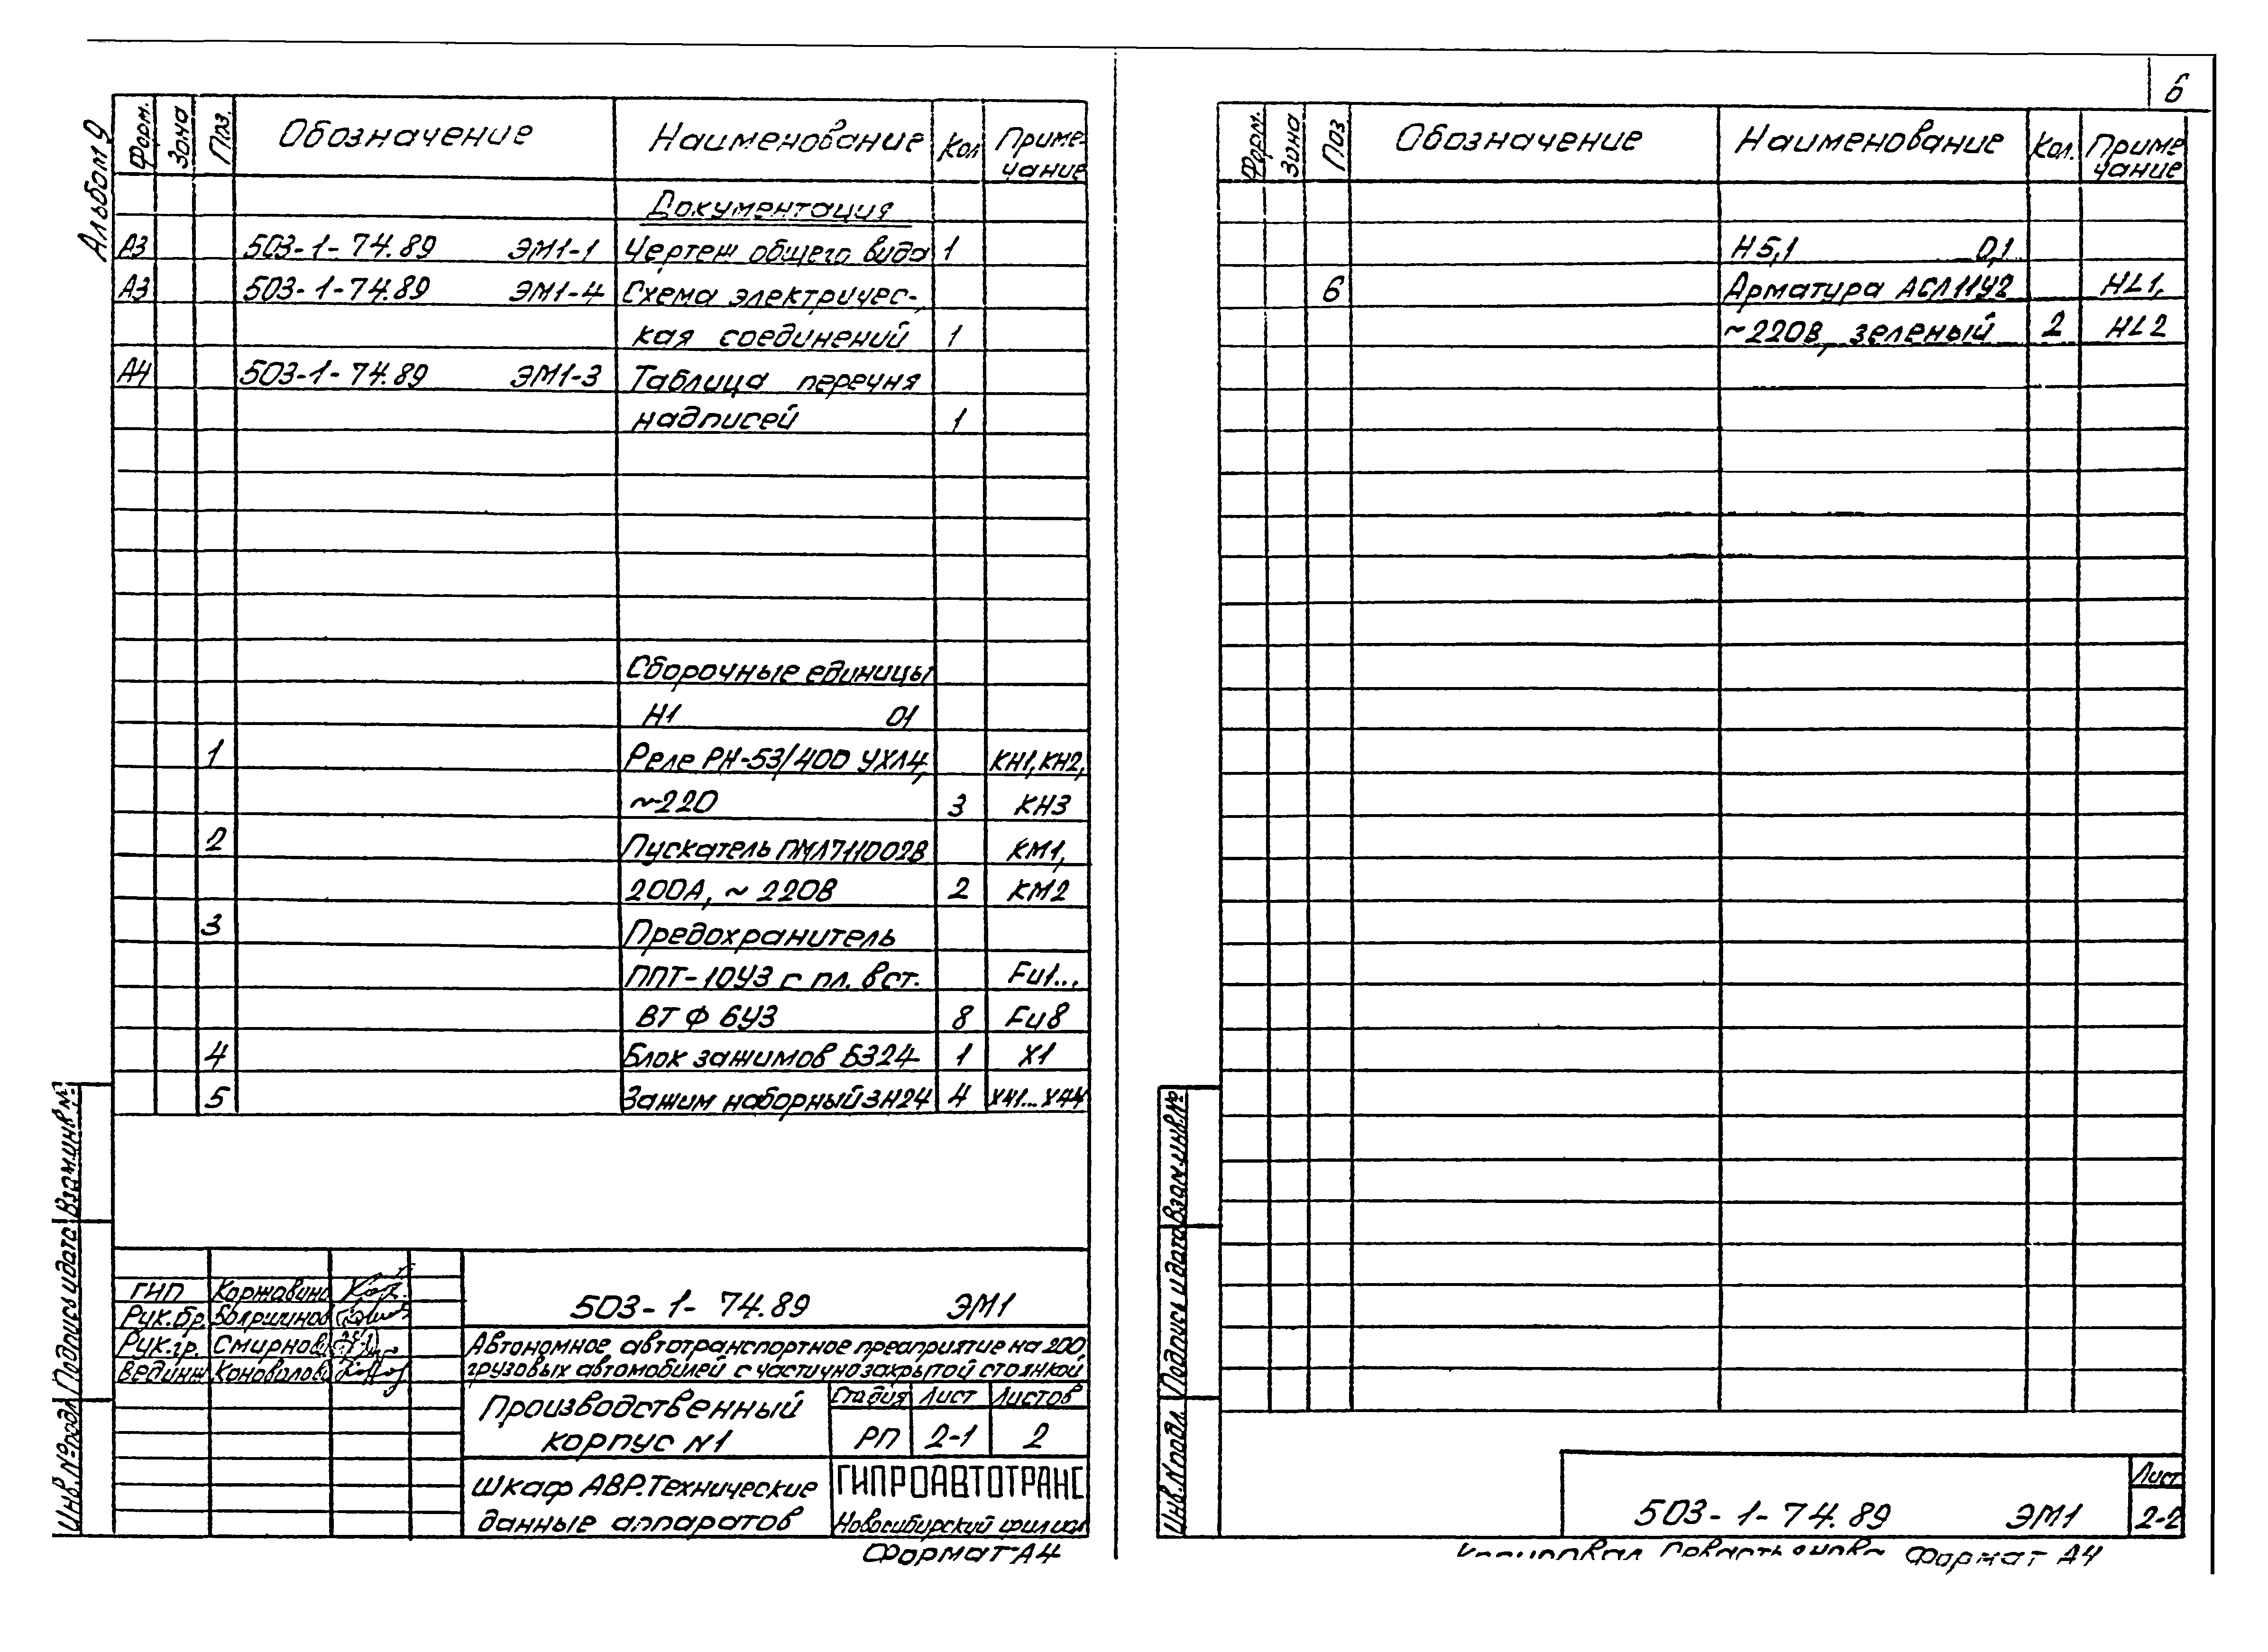 6
Альбом 9
Форм. Зона Поз. Обозначение Наименование Кол Приме-
чание
Документация
А3 503-1-74.89 ЭМ1-1 Чертеж общего вида 1
А3 503-1-74.89 ЭМ1-4 Схема электричес-
кая соединений 1
А4 503-1-74.89 ЭМ1-3 Таблица перечня
надписей 1
Сборочные единицы
Н1 01
1 Реле РН-53/400 УХЛ4, КН1, КН2,
~220 3 КН3
2 Пускатель ПМЛ711002В КМ1,
200А, ~ 220В 2 КМ2
3 Предохранитель
ППТ-10У3 с пл. вст. Fu1...
ВТФ 6У3 8 Fu8
4 Блок зажимов БЗ24 1 Х1
5 Зажим наборный ЗН24 4 Х41...Х44
Взам инв №
Подпись и дата
Инв. № подл
503-1-74.89 ЭМ1
ГИП Коржавина
Рук.бр. Бояршинов
Рук.гр. Смирнова
Вед инж Коновалова
Автономное автотранспортное предприятие на 200
грузовых автомобилей с частично закрытой стоянкой
Производственный
корпус N1
Стадия Лист Листов
РП 2-1 2
Шкаф АВР. Технические
данные аппаратов
ГИПРОАВТОТРАНС
Новосибирский филиал
Формат А4
Форм. Зона Поз Обозначение Наименование Кол. Приме
чание
Н5,1 0,1
6 Арматура АСЛ11У2 HL1,
~220В, зеленый 2 HL2
Взам.инв.№
Подпись и дата
Инв.N подл.
503-1-74.89 ЭМ1
Лист
2-2
Копировал Формат А4